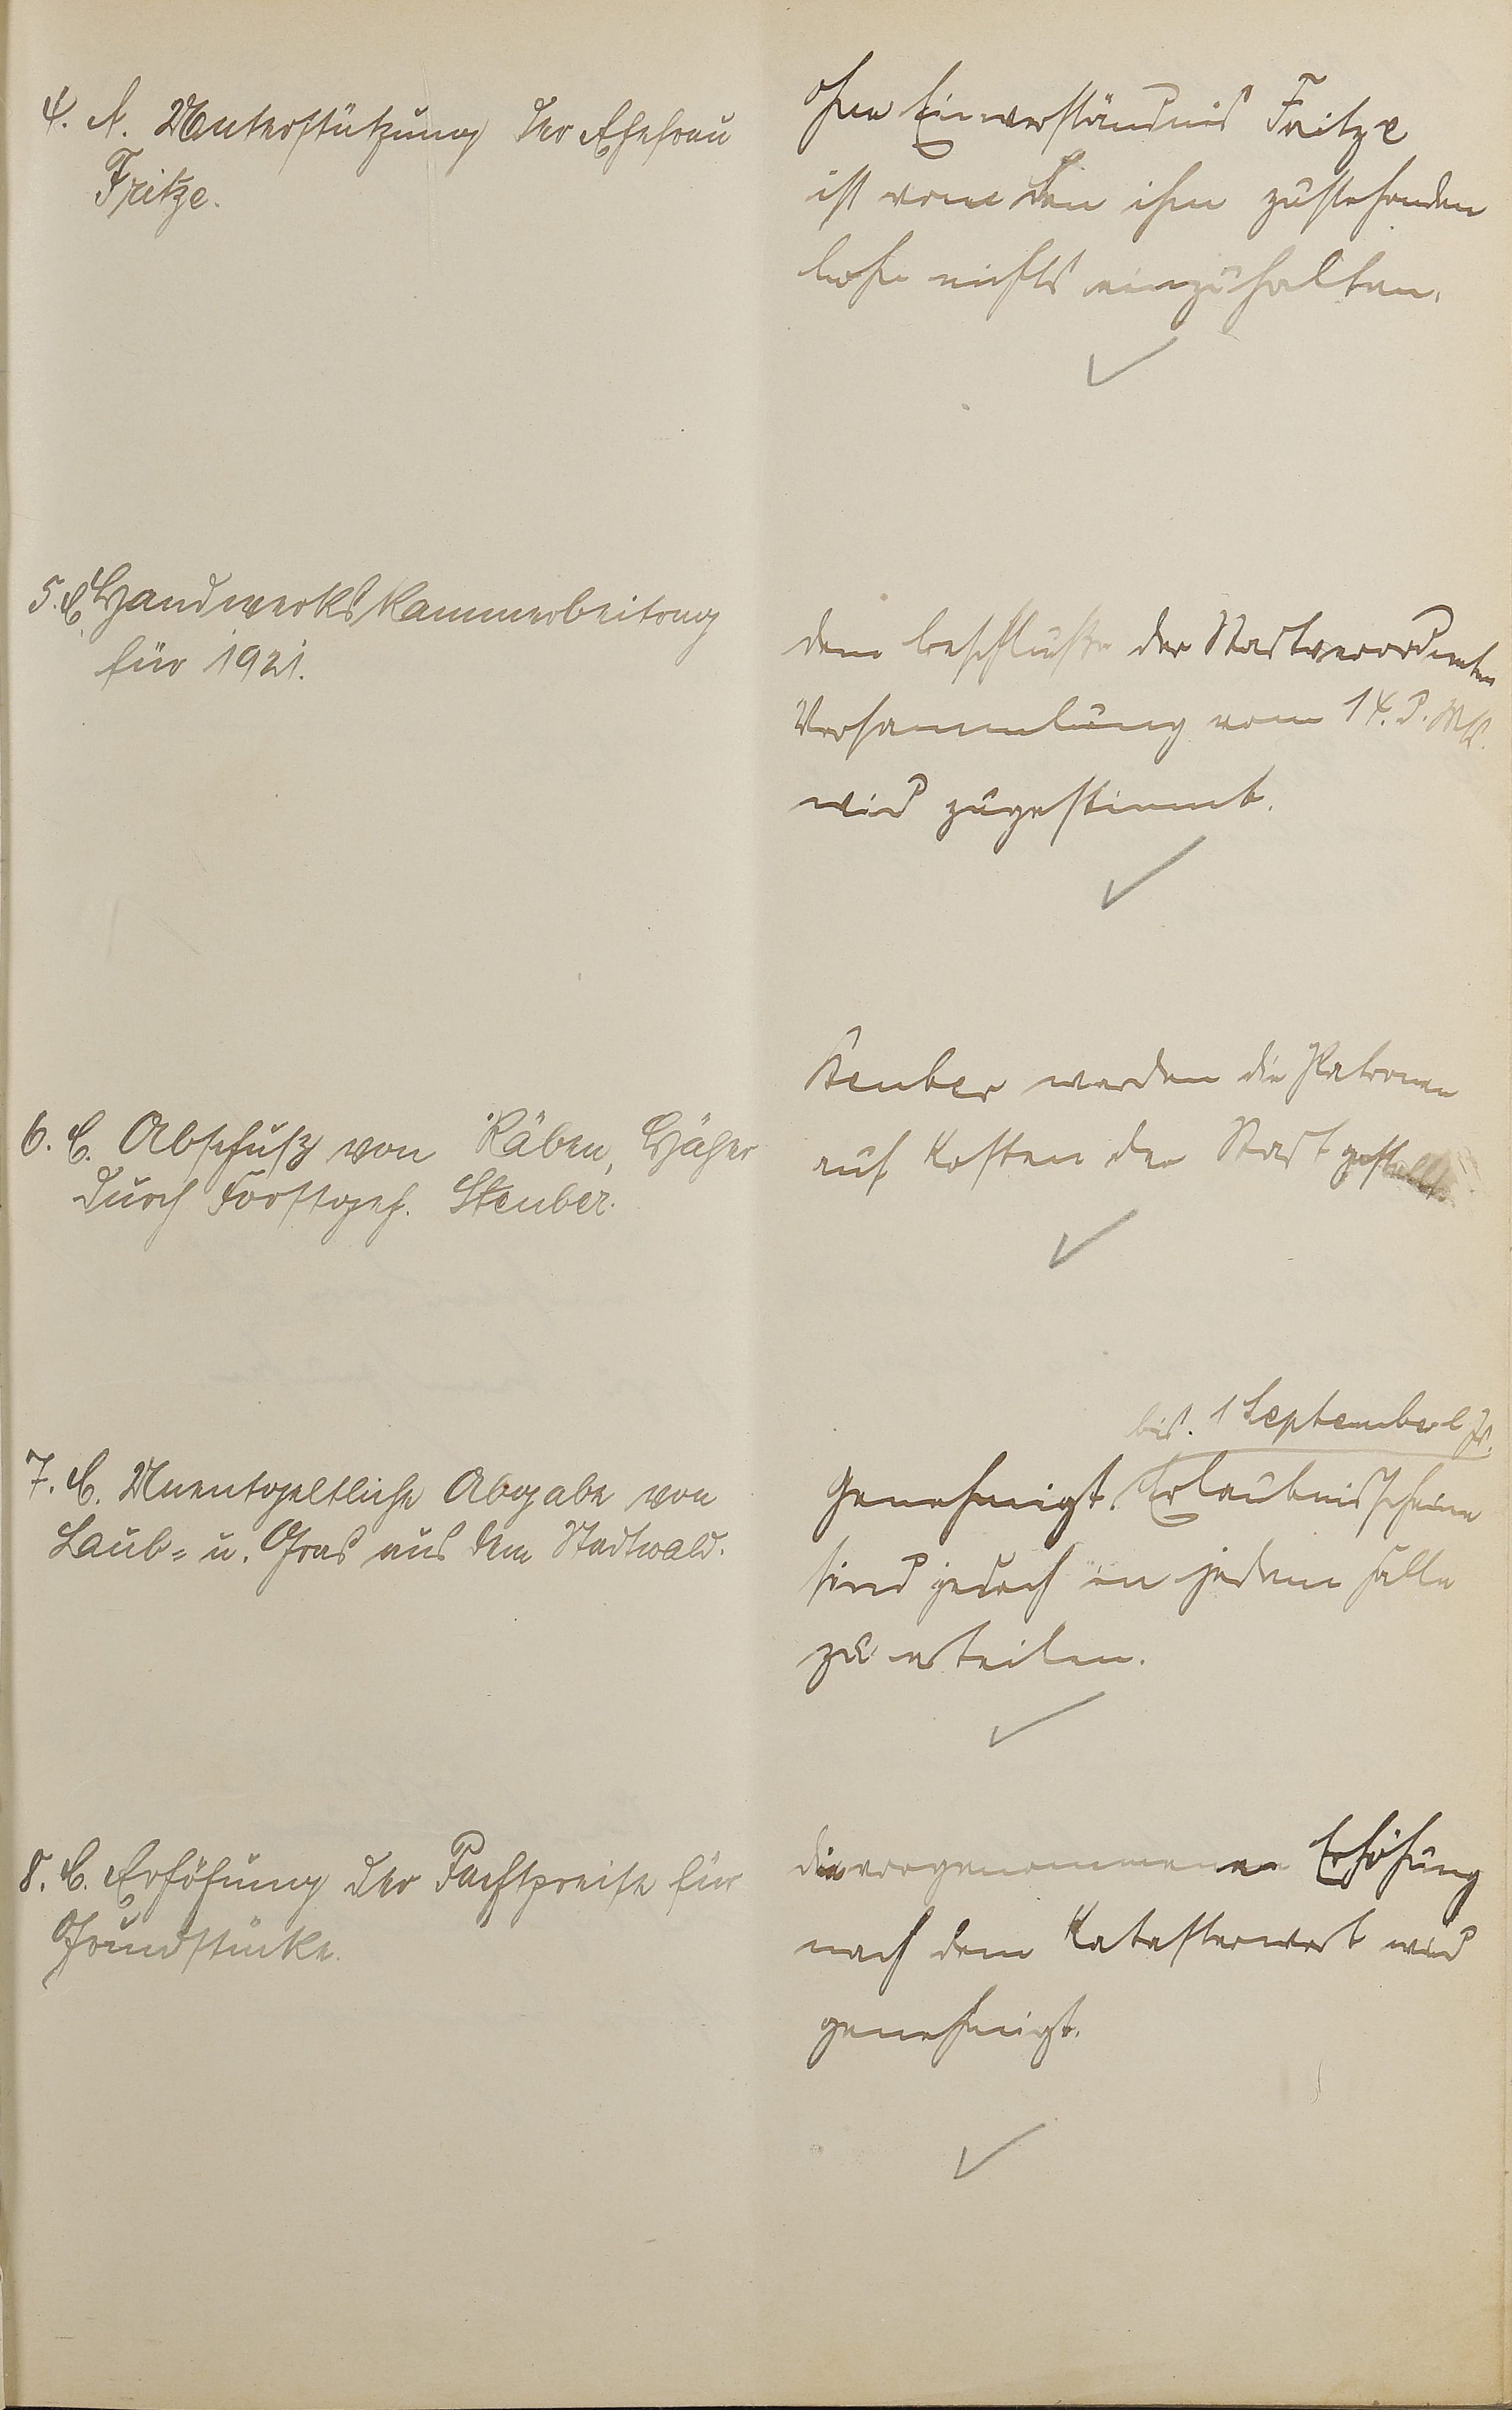 4. A. Unterstützung der Ehefrau
Fritze.
Ohne Einverständnis Fritze
ist von den ihm zustehenden
Lohn nichts einzuhalten.
5. C. Handwerkskammerbeitrag
für 1921.
Dem Beschlusse der Stadtverordneten
Versammlung vom 14. d. Mts.
wird zugestimmt.
6. C. Abschuß von Räben, Häher
durch Forstgeh. Steuber.
Steuber werden die Patronen
auf Kosten der Stadt gestellt.
7. C. Unentgeltliche Abgabe von
Laub- u. Gras aus dem Stadtwald.
bis 1 September l Js.
Genehmigt. Erlaubnisscheine
sind jedoch in jedem Falle
zu erteilen.
8. C. Erhöhung der Pachtpreise für
Grundstücke.
Die vorgenommene Erhöhung
nach dem Katasterwert wird
genehmigt.